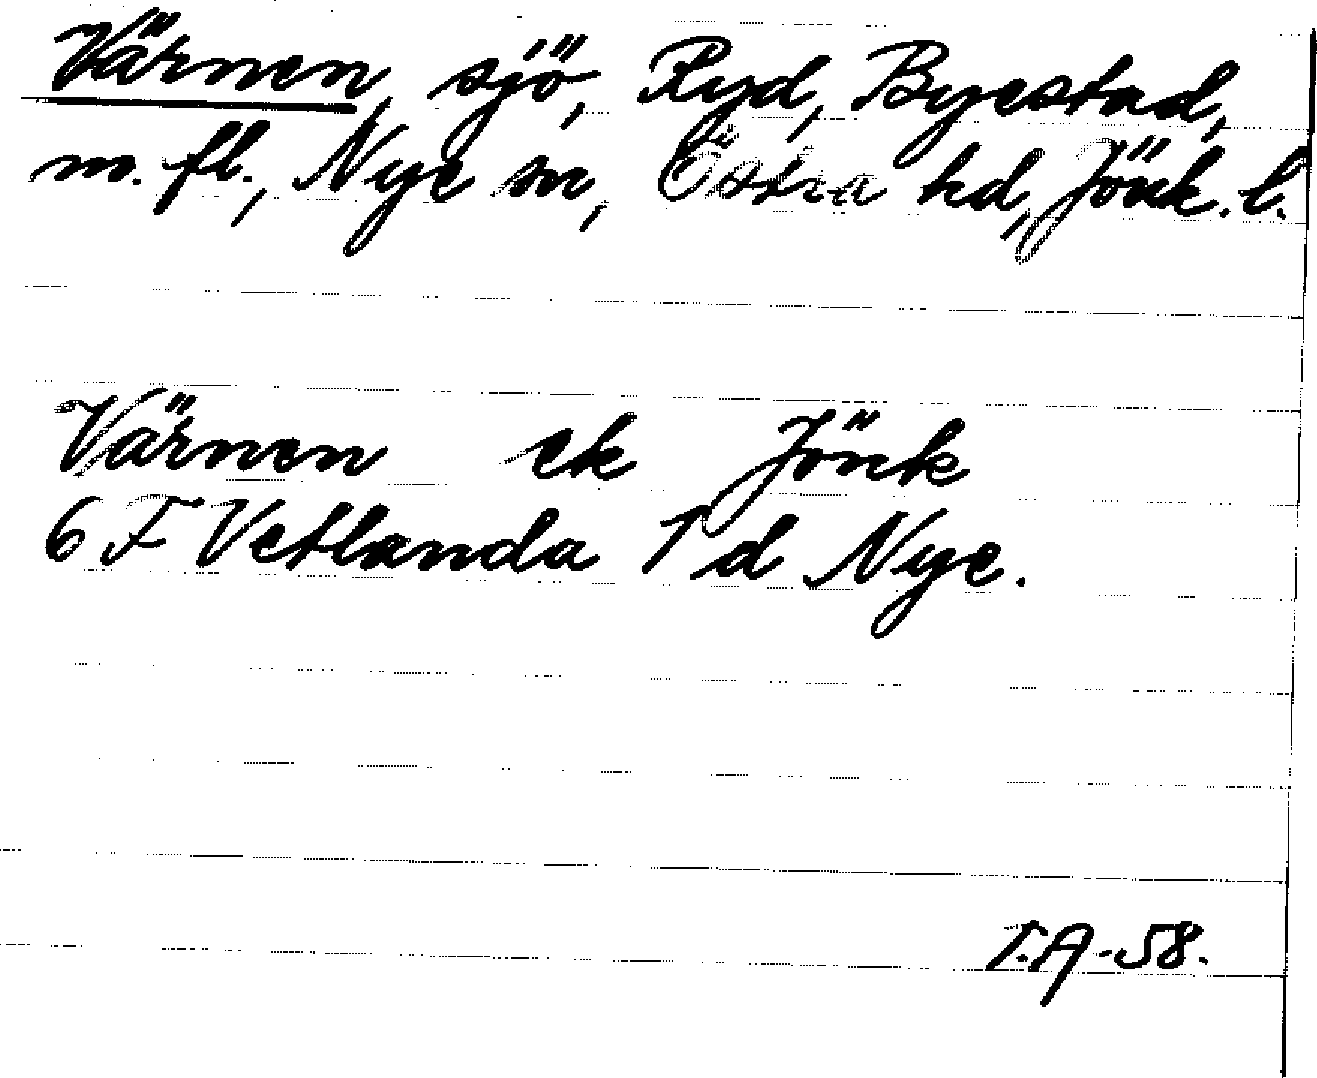 Värnen, sjö, Ryd, Byestad,
m. fl., Nye sn, Östra hd, Jönk. l.
Värnen ek Jönk
6 F Vetlanda 1 d Nye.
I.A-58.